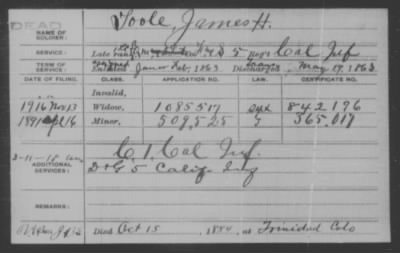 DEAD
NAME OF SOLDIER: Toole, James H.
SERVICE: Late rank, D 5 Reg't Cal Inf
TERM OF SERVICE: Enlisted Jan or Feb, 1863 Discharged May 19, 1863
DATE OF FILING. CLASS. APPLICATION NO. LAW. CERTIFICATE NO.
Invalid,
1916 Nov 13 Widow, 1085517 842,196
1891 16 Minor, 509,525 365,017
3-11-18
ADDITIONAL SERVICES: C. 1. Cal Inf.
D & G 5 Calif Inf
REMARKS:
Died Oct 15, 1884, at Trinidad Colo